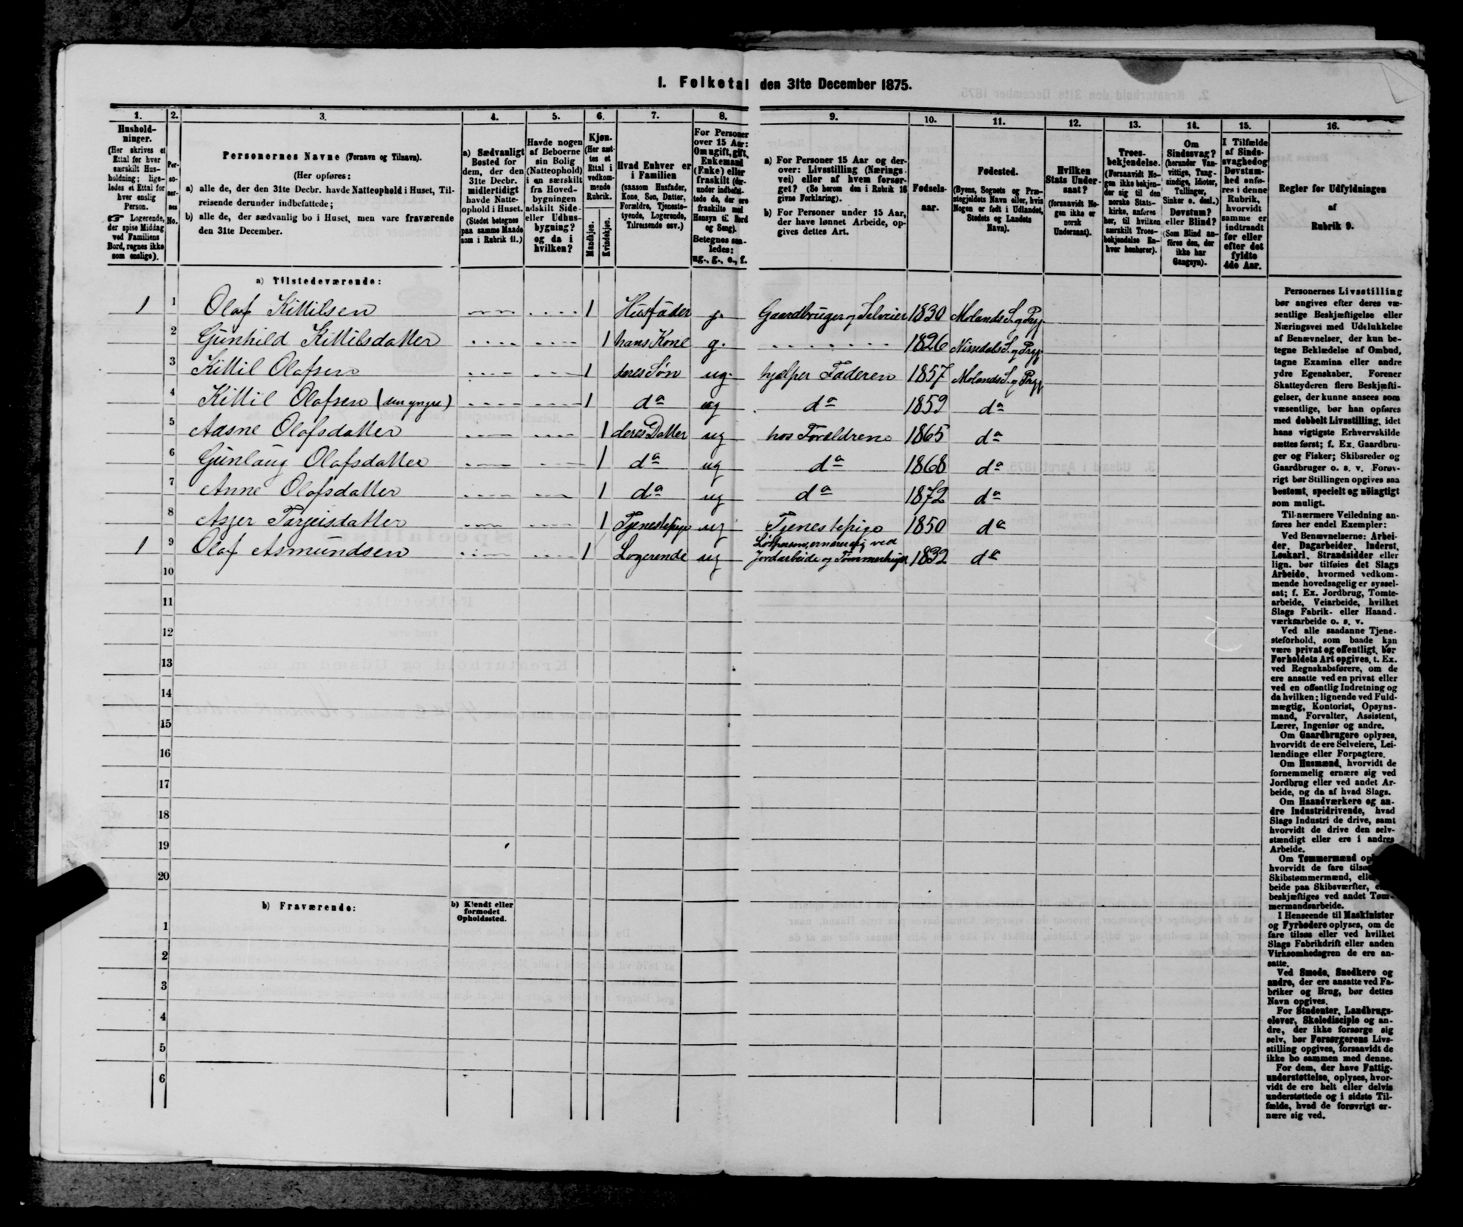 I. Folketal den 31te December 1875.
1. 2. 3. 4. 5. 6. 7. 8. 9. 10. 11. 12. 13. 14. 15. 16.
Hushold-
ninger.
(Her skrives et
Ettal for hver
særskilt Hus-
holdning; lige-
ledes et Ettal for
hver enslig
Person.
☞ Logerende,
der spise Middag
ved Familiens
Bord, regnes ikke
som enslige).
Per-
so-
ner-
nes
No.
Personernes Navne (Fornavn og Tilnavn).
(Her opføres:
a) alle de, der den 31te Decbr. havde Natteophold i Huset, Til-
reisende derunder indbefattede;
b) alle de, der sædvanlig bo i Huset, men vare fraværende
den 31te December.
a) Sædvanligt
Bosted for
dem, der den
31te Decbr.
midlertidigt
havde Natte-
ophold i Huset.
(Stedet betegnes
paa samme Maade
som i Rubrik 11.)
Havde nogen
af Beboerne
sin Bolig
(Natteophold)
i en særskilt
fra Hoved-
bygningen
adskilt Side-
eller Udhus-
bygning?
og da i
hvilken?
Kjøn.
(Her sæt-
tes et
Ettal i
vedkom-
mende
Rubrik.
Mandkjøn.
Kvindekjøn.
Hvad Enhver er
i Familien
(saasom Husfader,
Kone, Søn, Datter,
Forældre, Tjeneste-
tyende, Logerende,
Tilreisende osv.)
For Personer
over 15 Aar:
Om ugift, gift,
Enkemand
(Enke) eller
fraskilt (der-
under indbefat-
tede de, der ere
fraskilte med
Hensyn til Bord
og Seng).
Betegnes saa-
ledes:
ug., g., e., f.
a) For Personer 15 Aar og der-
over: Livsstilling (Nærings-
vei) eller af hvem forsør-
get? (Se herom den i Rubrik 16
givne Forklaring).
b) For Personer under 15 Aar,
der have lønnet Arbeide, op-
gives dettes Art.
Fødsels-
aar.
Fødested.
(Byens, Sognets og Præ-
stegjeldets Navn eller, hvis
Nogen er født i Udlandet,
Stedets og Landets
Navn).
Hvilken
Stats Under-
saat?
(forsaavidt No-
gen ikke er
norsk
Undersaat).
Troes-
bekjendelse.
(Forsaavidt No-
gen ikke bekjen-
der sig til den
norske Stats-
kirke, anføres
her, til hvilken
særskilt Troes-
bekjendelse En-
hver henhører).
Om
Sindssvag?
(herunder Van-
vittige, Tung-
sindige, Idioter,
Tullinger,
Sinker o. desl.)
Døvstum?
eller Blind?
(Som Blind an-
føres den, der
ikke har
Gangsyn).
I Tilfælde
af Sinds-
svaghed og
Døvstum-
hed anfø-
res i denne
Rubrik,
hvorvidt
samme er
indtraadt
før eller
efter det
fyldte
4de Aar.
Regler for Udfyldningen
af
Rubrik 9.
a) Tilstedeværende:
1 1 Olaf Kittilsen 1 Husfader g. Gaardbruger og Selveier 1830 Molands S. og Prg.
2 Gunhild Kittilsdatter 1 hans Kone g. 1826 Nissedals S. og Prg.
3 Kittil Olafsen 1 deres Søn ug. hjelper Faderen 1857 Molands S. og Prg.
4 Kittil Olafsen (den yngre) 1 do ug do 1859 do
5 Aasne Olafsdatter 1 deres Datter ug hos Foreldrene 1865 do
6 Gunlaug Olafsdatter 1 do ug do 1868 do
7 Anne Olafsdatter 1 do ug do 1872 do
8 Asjer Tarjeisdatter 1 Tjenestepige ug Tjenestepige 1850 do
1 9 Olaf Asmundsen 1 Logerende ug Jordarbeide og Tømmerhuger 1832 do
10
11
12
13
14
15
16
17
18
19
20
b) Fraværende:
b) Kjendt eller
formodet
Opholdssted.
1
2
3
4
5
6
Personernes Livsstilling
bør angives efter deres væ-
sentlige Beskjæftigelse eller
Næringsvei med Udelukkelse
af Benævnelser, der kun be-
tegne Beklædelse af Ombud,
tagne Examina eller andre
ydre Egenskaber. Forener
Skatteyderen flere Beskjæfti-
gelser, der kunne ansees som
væsentlige, bør han opføres
med dobbelt Livsstilling, idet
hans vigtigste Erhvervskilde
sættes først; f. Ex. Gaardbru-
ger og Fisker; Skibsreder og
Gaardbruger o. s. v. Forøv-
rigt bør Stillingen opgives saa
bestemt, specielt og nøiagtigt
som muligt.
Til nærmere Veiledning an-
føres her endel Exempler:
Ved Benævnelserne: Arbei-
der, Dagarbeider, Inderst,
Løskarl, Strandsidder eller
lign. bør tilføies det Slags
Arbeide, hvormed vedkom-
mende hovedsagelig er syssel-
sat; f. Ex. Jordbrug, Tomte-
arbeide, Veiarbeide, hvilket
Slags Fabrik- eller Haand-
værksarbeide o. s. v.
Ved alle saadanne Tjene-
steforhold, som baade kan
være privat og offentligt, bør
Forholdets Art opgives, t. Ex.
ved Regnskabsførere, om de
ere ansatte ved en privat eller
ved en offentlig Indretning og
da hvilken; lignende ved Fuld-
mægtig, Kontorist, Opsyns-
mand, Forvalter, Assistent,
Lærer, Ingeniør og andre.
Om Gaardbrugere oplyses,
hvorvidt de ere Selveiere, Lei-
lændinge eller Forpagtere.
Om Husmænd, hvorvidt de
fornemmelig ernære sig ved
Jordbrug eller ved andet Ar-
beide, og da af hvad Slags.
Om Haandværkere og an-
dre Industridrivende, hvad
Slags Industri de drive, samt
hvorvidt de drive den selv-
stændigt eller ere i andres
Arbeide.
Om Tømmermænd
hvorvidt de fare tilsøs
Skibstømmermænd,
beide paa Skibsværfter,
beskjæftiges ved andet Tøm-
mermandsarbeide.
I Henseende til Maskinister
og Fyrbødere oplyses, om de
fare tilsøs eller ved hvilket
Slags Fabrikdrift eller anden
Virksomhedsgren de ere an-
satte.
Ved Smede, Snedkere og
andre, der ere ansatte ved Fa-
briker og Brug, bør dettes
Navn opgives.
For Studenter, Landbrugs-
elever, Skoledisciple og an-
dre, der ikke forsørge sig
selv, bør Forsørgerens Livs-
stilling opgives, forsaavidt de
ikke bo sammen med denne.
For dem, der have Fattig-
understøttelse, oplyses, hvor-
vidt de ere helt eller delvis
understøttede og i sidste Til-
fælde, hvad de forøvrigt er-
nære sig ved.